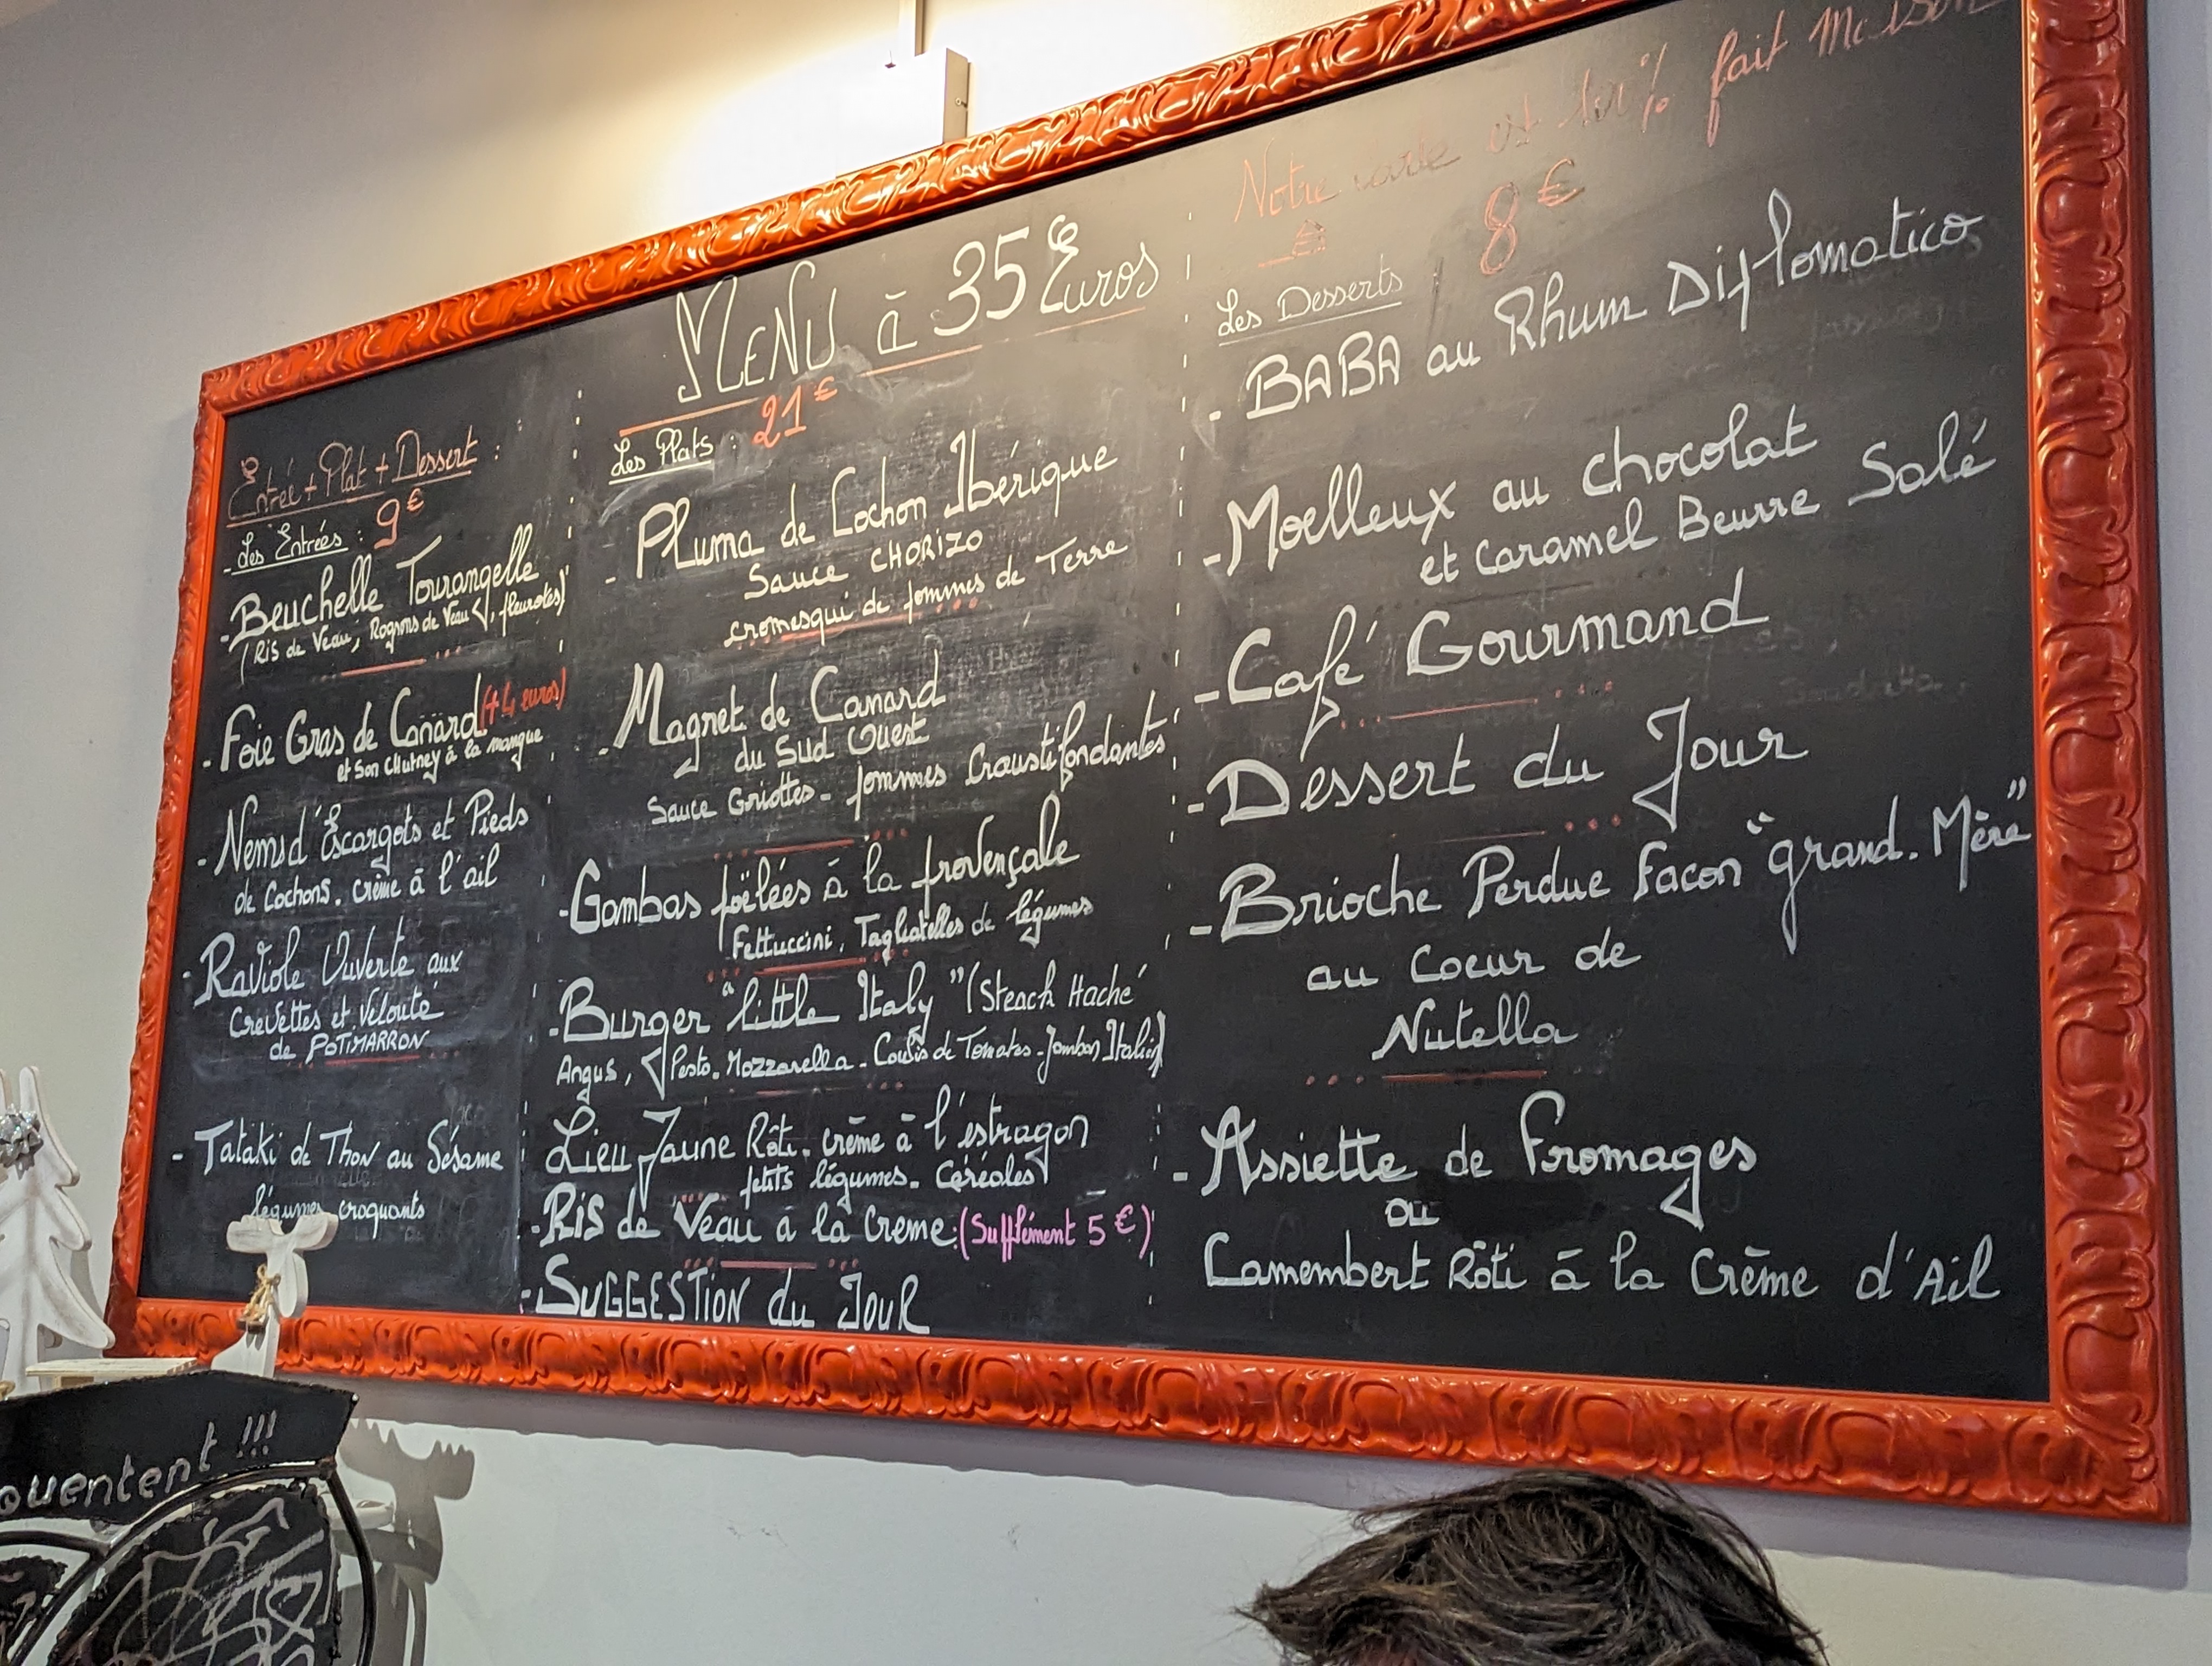 Notre carte est 100% fait Maison
MENU à 35 Euros
Entrée + Plat + Dessert :
9€
- Les Entrées :
- Beuchelle Tourangelle
(Ris de Veau, Rognons de Veau, fleurotes)
- Foie Gras de Canard (+4 euros)
et Son Chutney à la mangue
- Nems d'Escargots et Pieds
de Cochons. crème à l'ail
- Raviole Ouverte aux
Crevettes et Velouté
de POTIMARRON
- Tataki de Thon au Sésame
légumes croquants
Les Plats : 21€
- Pluma de Cochon Ibérique
Sauce CHORIZO
cromesqui de pommes de Terre
- Magret de Canard
du Sud Ouest
Sauce Griottes - pommes Croustifondantes
- Gambas poëlées à la provençale
Fettuccini, Tagliatelles de légumes
- Burger "little Italy" (Steack Haché
Angus, Pesto. Mozzarella - Coulis de Tomates - Jambon Italien)
Lieu Jaune Rôti. crème à l'estragon
petits légumes. Céréales
- Ris de Veau a la Creme (Supplément 5 €)
- SUGGESTION du JOUR
8€
Les Desserts
- BABA au Rhum Diplomatico
- Moelleux au chocolat
et Caramel Beurre Salé
- Café Gourmand
- Dessert du Jour
- Brioche Perdue Facon "grand. Mère"
au Coeur de
Nutella
- Assiette de Fromages
ou
Camembert Rôti à la Crème d'Ail
quentent !!!